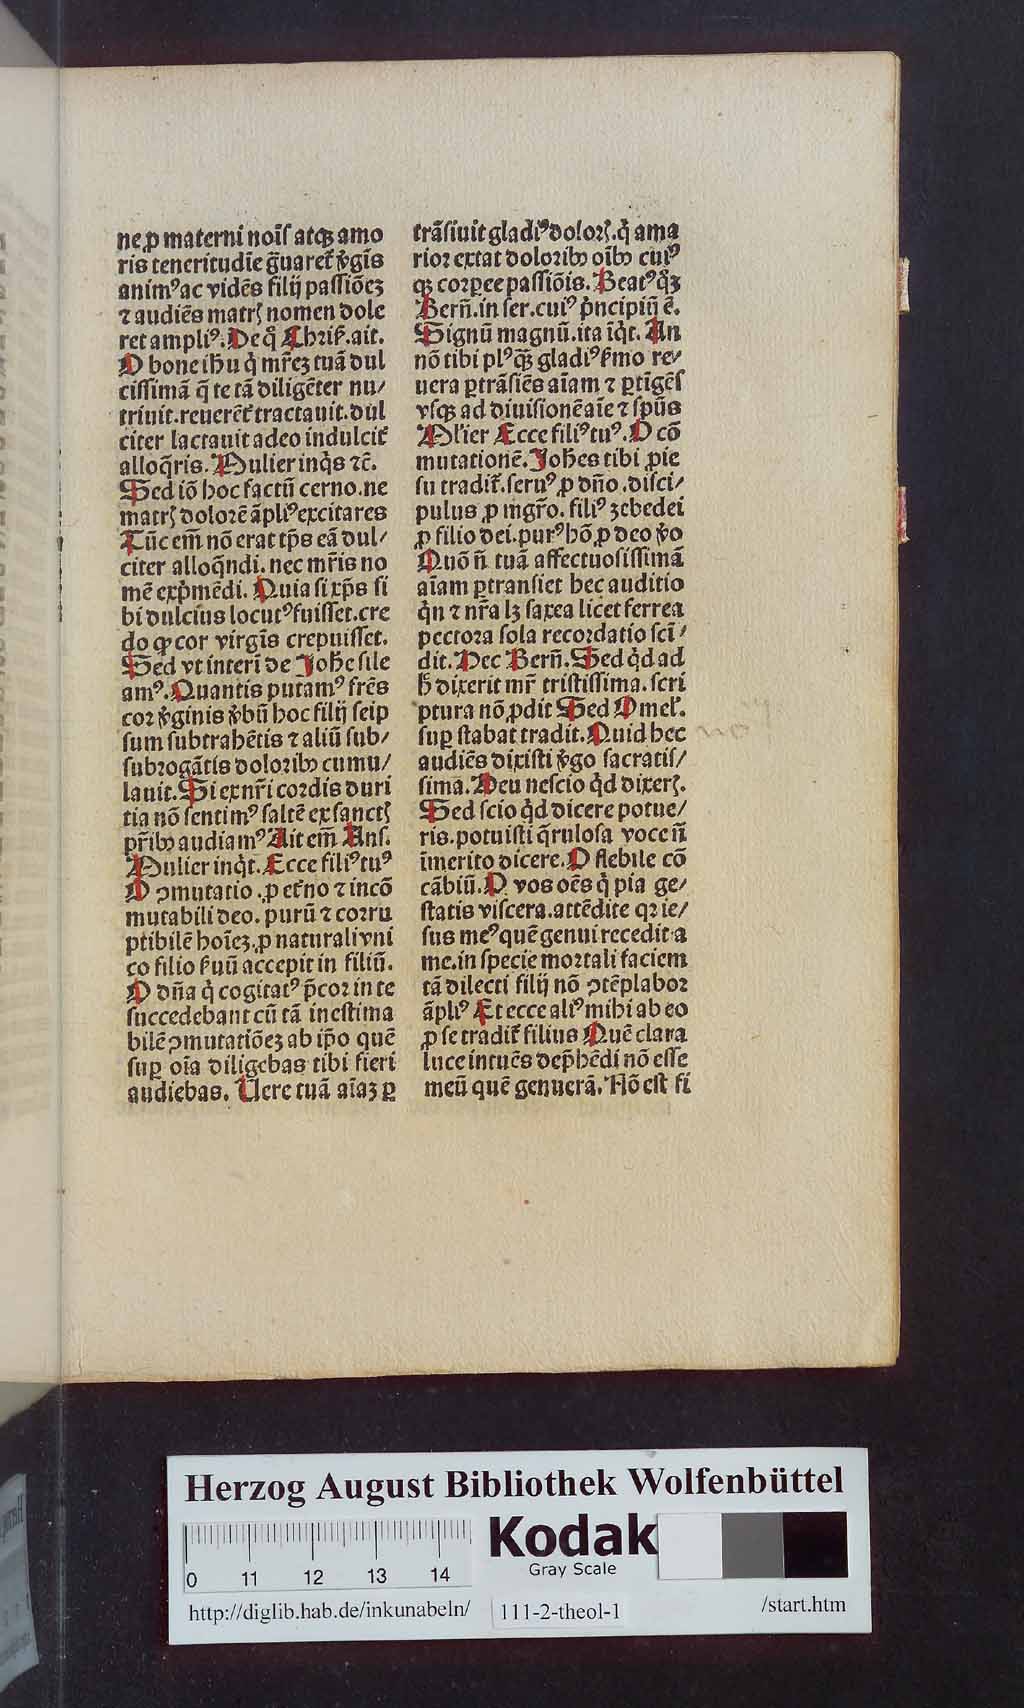 ne ꝓ materni noīſ atqꝫ amo
ris teneritudīe g̃uaret᷑ v̓gīs
animꝰ ac vidēs filij paſſiōeꝫ
⁊ audiēs matrꝭ nomen dole
ret ampliꝰ. De qͦ Chriſ. ait.
O bone ihū q̇ mr̄eꝫ tuā dul
ciſſimā q̄ te tā diligēter nu/
triuit. reuerēt᷑ tractauit. dul
citer lactauit adeo indulcit᷑
alloq̄ris. Mulier inq̇s ⁊c̄.
Sed iō hoc factū cerno. ne
matrꝭ dolorē āpliꝰ excitares
Tūc em̄ nō erat tp̄s eā dul/
citer alloq̄ndi. nec mr̄is no
mē exp̓mēdi. Quia ſi xp̄s ſi
bi dulcius locutꝰ fuiſſet. cre
do ꝙ cor virgīs crepuiſſet.
Sed vt interī de Johē ſile
amꝰ. Quantis putamꝰ frēs
cor v̓ginis v̓bū hoc filij ſeip
ſum ſubtrahētis ⁊ aliū ſub/
ſubrogātis doloribꝫ cumu/
lauit. Si ex nr̄i cordis duri
tia nō ſentimꝰ ſaltē ex ſanctꝭ
pr̄ibꝫ audiamꝰ Ait em̄ Anſ.
Mulier inq̇t. Ecce filiꝰ tuꝰ
O ꝯmutatio. ꝓ et᷑no ⁊ incō
mutabili deo. purū ⁊ corru
ptibilē hoīeꝫ. ꝓ naturali vni
co filio ẜuū accepit in filiū.
O dn̄a q̇ cogitatꝰ p̄cor in te
ſuccedebant cū tā ineſtima
bilē ꝯmutatiōeꝫ ab ip̄o quē
ſuꝑ oīa diligebas tibi fieri
audiebas. Uere tuā aīaꝫ ꝑ
trāſiuit gladiꝰ dolorꝭ. q̇ ama
rior extat doloribꝫ oībꝫ cuiꝰ
qꝫ corꝑee paſſiōis. Beatꝰ q̇ꝫ
Berñ. in ſer. cuiꝰ p̓ncipiū ē.
Signū magnū. ita īq̇t. An
nō tibi plꝰ qꝫ̄ gladiꝰ ẜmo re/
uera ꝑtrāſiēs aīam ⁊ ꝑtīgēſ
vſqꝫ ad diuiſionē aīe ⁊ ſpūs
Ml̓ier Ecce filiꝰ tuꝰ. O cō
mutationē. Johēs tibi ꝓ ie
ſu tradit᷑. ſeruꝰ ꝓ dn̄o. diſci/
pulus ꝓ mgr̄o. filiꝰ zebedei
ꝓ filio dei. purꝰ hō ꝓ deo v̓o
Quō n̄ tuā affectuoſiſſimā
aīam ꝑtranſiet hec auditio
q̄n ⁊ nr̄a lꝫ ſaxea licet ferrea
pectora ſola recordatio ſcī/
dit. Hec Berñ. Sed q̇d ad
h̄ dixerit mr̄ triſtiſſima. ſcri
ptura nō ꝓdit Sed Omel᷑.
ſuꝑ ſtabat tradit. Quid hec
audiēs dixiſti v̓go ſacratiſ/
ſima. Heu neſcio q̇d dixerꝭ.
Sed ſcio q̇d dicere potue/
ris. potuiſti q̄ruloſa voce n̄
īmerito dicere. O flebile cō
cābiū. O vos oēs q̇ pia ge/
ſtatis viſcera. attēdite qꝛ ie/
ſus meꝰ quē genui recedit a
me. in ſpecie mortali faciem
tā dilecti filij nō ꝯtēplabor
āpliꝰ Et ecce aliꝰ mihi ab eo
ꝓ ſe tradit᷑ filius Quē clara
luce intuēs dep̄hēdi nō eſſe
meū quē genuerā. Nō eſt fi
Herzog August Bibliothek Wolfenbüttel
Kodak
Gray Scale
0 11 12 13 14
http://diglib.hab.de/inkunabeln/ 111-2-theol-1 /start.htm